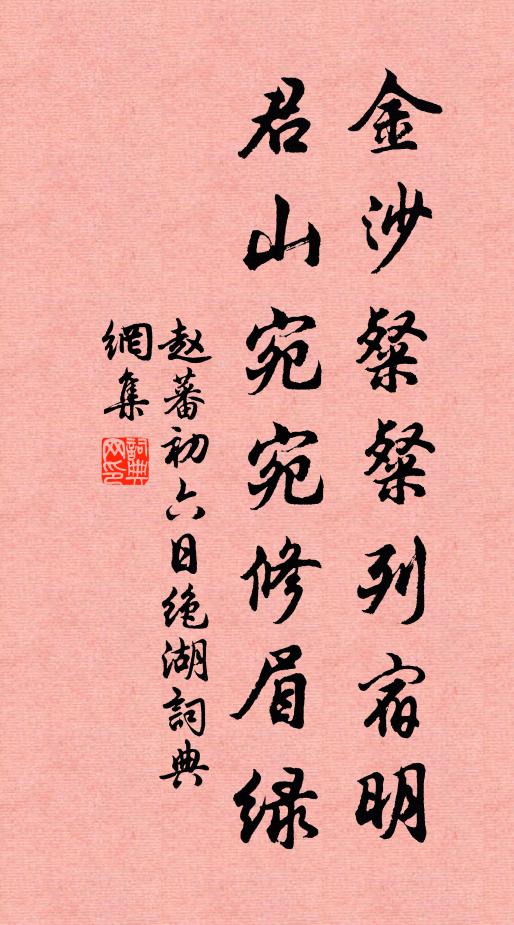 金沙粲粲列宿明
君山宛宛修眉绿
赵蕃初六日绝湖詞典
網集
詞典网印